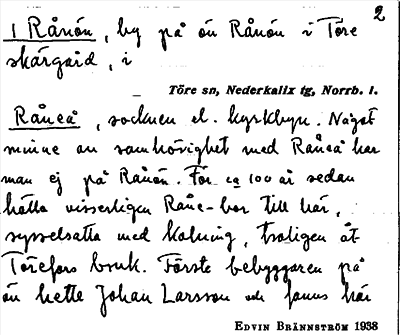 2
1 Rånön, by på ön Rånön i Töre
skärgård, i
Töre sn, Nederkalix tg, Norrb. l.
Råneå, socknen el. kyrkbyn. Något
minne av samhörighet med Råneå har
man ej på Rånön. För ca 100 år sedan
hölla visserligen Råne-bor till här,
sysselsatta med kolning, troligen åt
Törefors bruk. Förste bebyggaren på
ön hette Johan Larsson och fanns här
EDVIN BRÄNNSTRÖM 1938